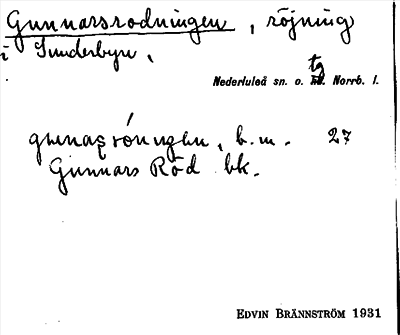 Gunnarsrodningen, röjning
i Sunderbyn.
tg
Nederluleå sn. o. Norrb. l.
b. m. 27
Gunnars Röd bk.
EDVIN BRÄNNSTRÖM 1931